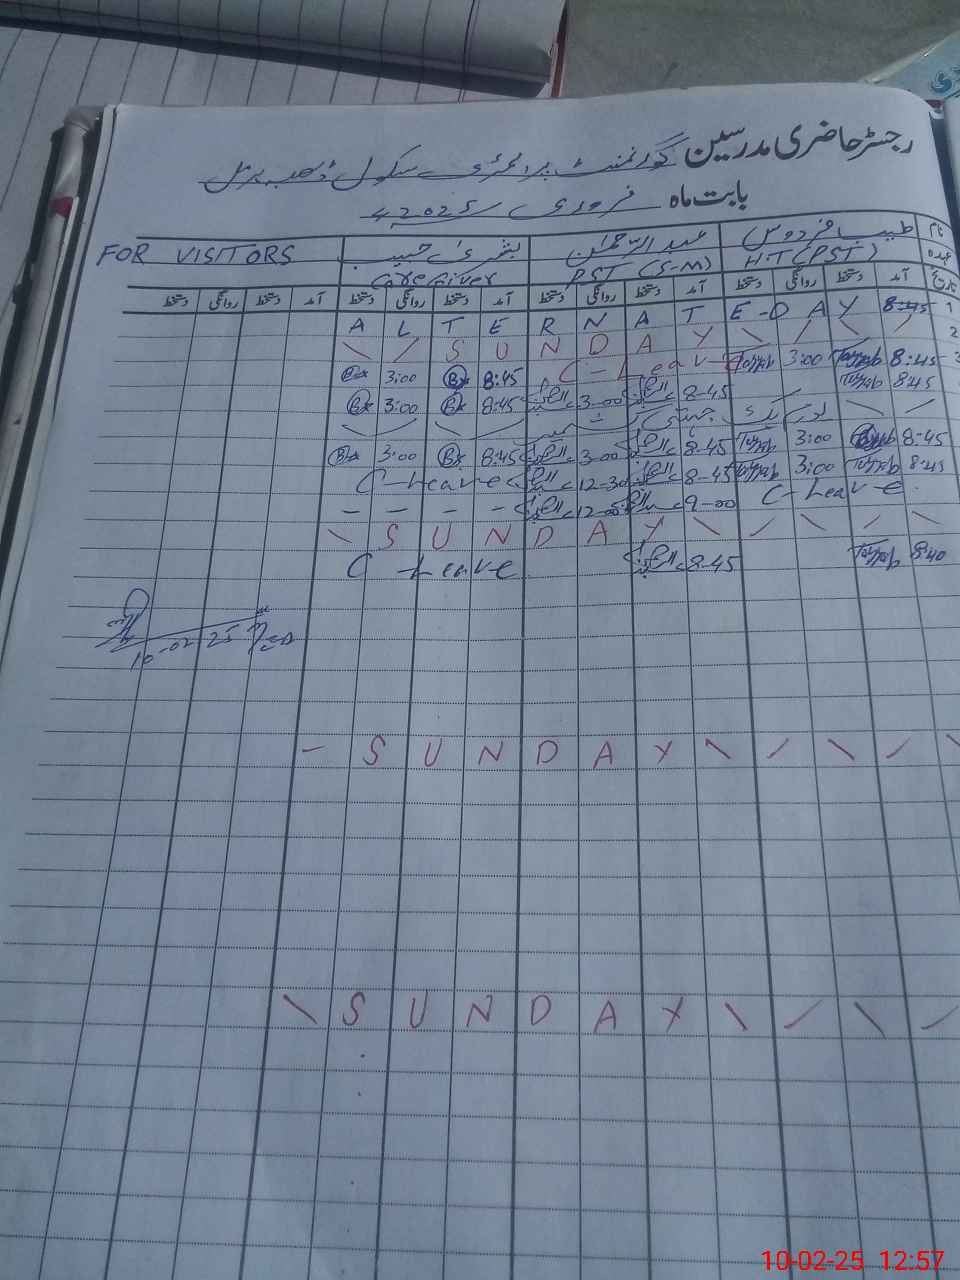 رجسٹر حاضری مدرسین گورنمنٹ پرائمری سکول
بابت ماہ فروری 2025ء
نام طیب فردوس عبدالرحمٰن بشریٰ حبیب FOR VISITORS
عہدہ H.T (PST) PST (S-M) Care Giver
تاریخ آمد دستخط روانگی دستخط آمد دستخط روانگی دستخط آمد دستخط روانگی دستخط آمد دستخط روانگی دستخط
1 A L T E R N A T E - D A Y 8:45
2 S U N D A Y
3 8:45 Tayyab 3:00 Tayyab C-Leave 8:45 3:00
8:45 Tayyab 8-45 3-00 8:45 3:00
یوم یکجہتی کشمیر
8:45 3:00 Tayyab 8-45 3-00 8:45 3:00
8:45 Tayyab 3:00 Tayyab 8-45 12-30 C-Leave
C-Leave 9-00 12-00 - - - -
S U N D A Y
8:40 Tayyab 8-45 C-Leave
10-02-25
- S U N D A Y
S U N D A Y
10-02-25 12:57